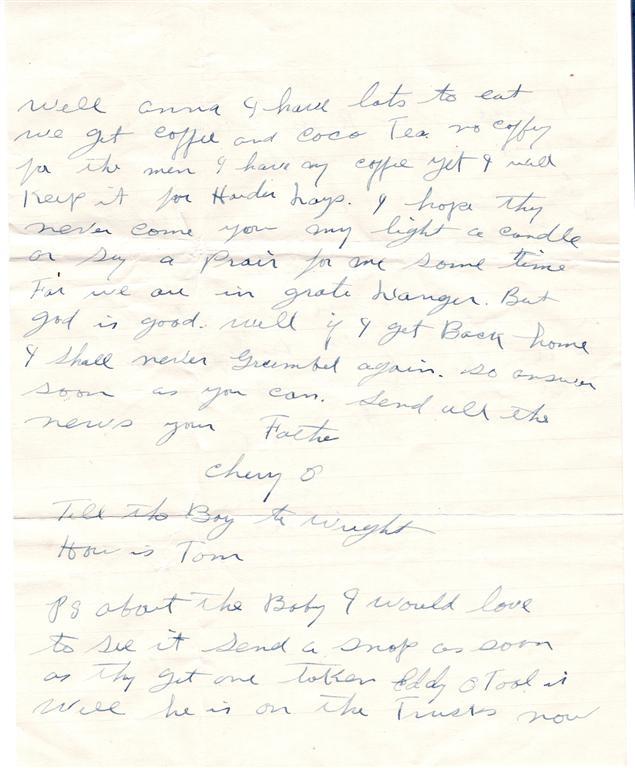 Well anna I have lots to eat
we get coffee and coco Tea. no coffey
for the men I have my coffee yet I will
Keep it for Harder Days. I hope they
never come you my light a candle
or Say a Prair for me some time
For we are in grate Danger. But
god is good. Well if I get Back home
I Shall never Greembel again. So answer
soon as you can. Send all the
news your Father
Cheery O
Tell the Boy to Wright
How is Tom
PS about the Baby I would love
to see it Send a snap as soon
as they get one taken Eddy O Tool is
Well he is on the Trucks now